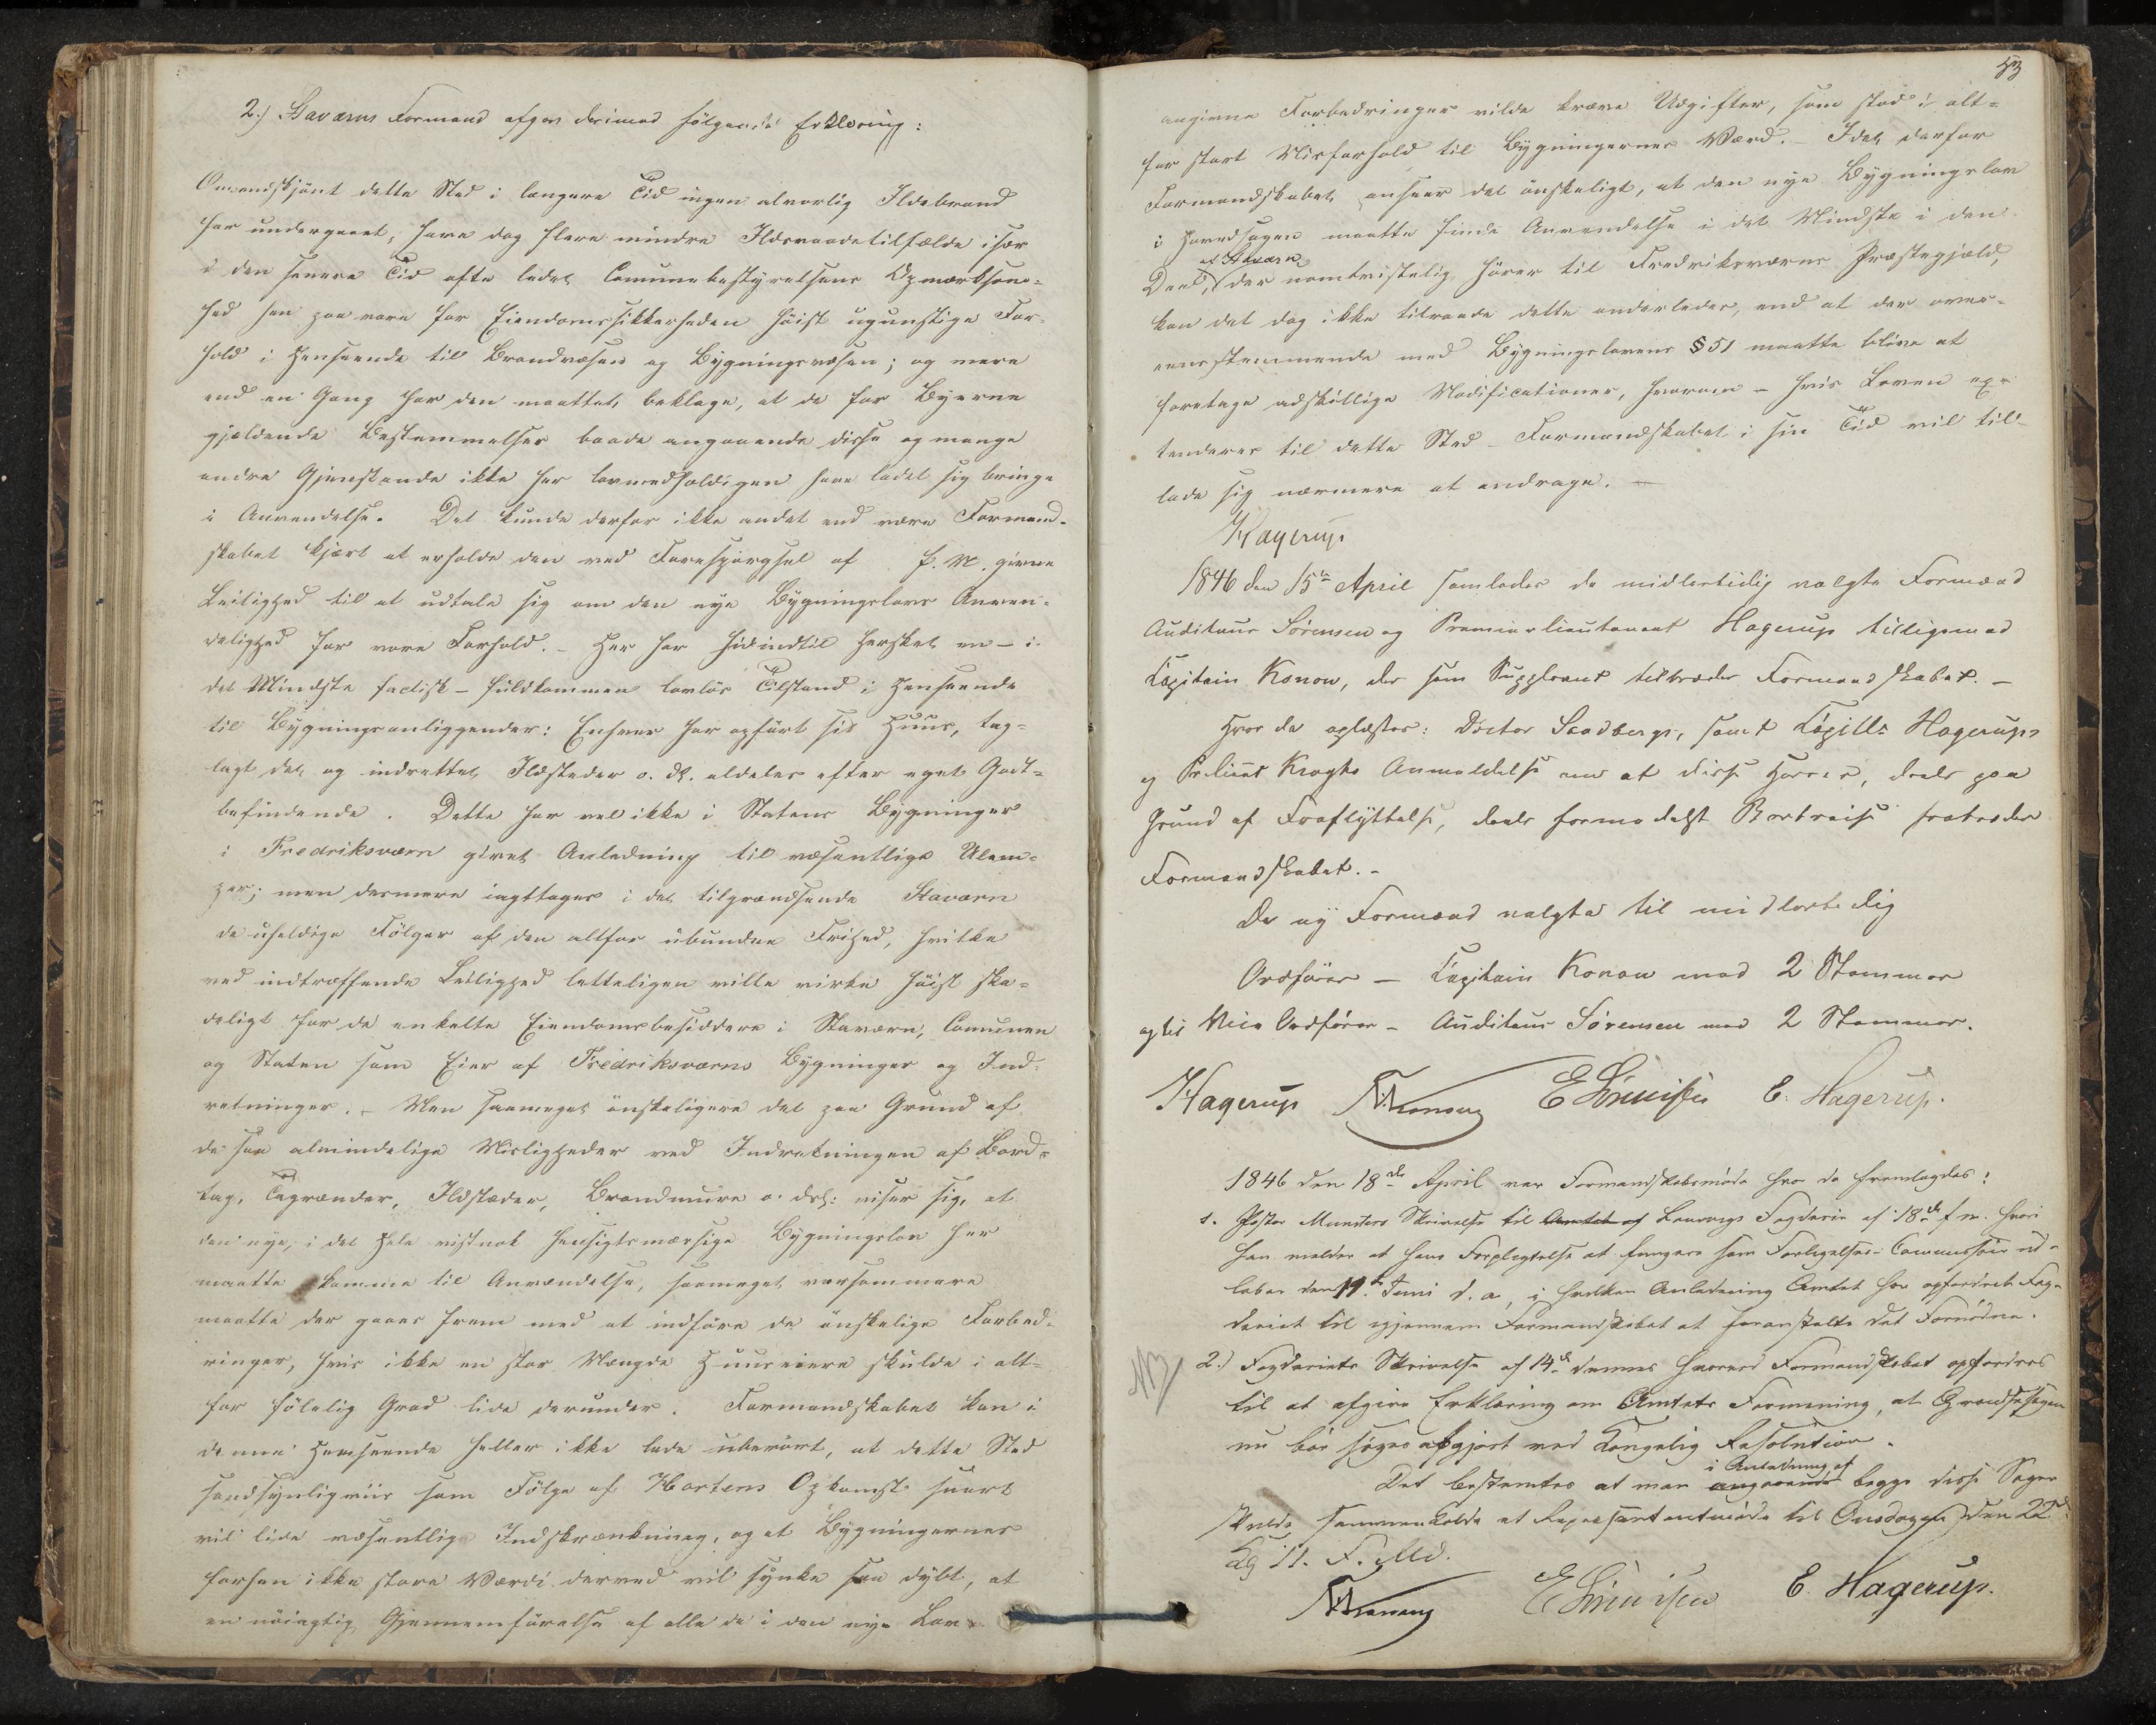 2.) Staværns Formænd afgav derimod følgende Erklæring:
Omendskjönt dette Sted i længere Tid ingen alvorlig Ildebrand
har undergaaet, have dog flere mindre Ildsvaadetilfælde især
i den senere Tid ofte ledet Comunebestyrelsens Opmærksom-
hed hen paa vore for Eiendomssikkerheden höist ugunstige For-
hold i Henseende til Brandvæsen og Bygningsvæsen; og mere
end en Gang har den maattet beklage, at de for Byerne
gjældende Bestemmelser baade angaaende disse og mange
andre Gjenstande ikke her lovmedholdigen have ladet sig bringe
i Anvendelse. Det kunde derfor ikke andet end være Formand-
skabet kjært at erholde den ved Forespörgsel af f. M. givne
Leilighed til at udtale sig om den nye Bygningslovs Anven-
delighed for vore Forhold. – Her har hidindtil hersket en – i
det Mindste factisk – fuldkommen lovlös Tilstand i Henseende
til Bygningsanliggender: Enhver har opfört sit Huus, tag-
lagt det og indrettet Ildsteder o. dl. aldeles efter eget Godt-
befindende. Dette har vel ikke i Statens Bygninger
i Fredriksværn givet Anledning til væsentlige Ulem-
per; men desmere iagttages i det tilgrændsende Staværn
de uheldige Fölger af den altfor ubundne Frihed, hvilke
ved indtræffende Leilighed letteligen ville virke höist ska-
deligt for de enkelte Eiendomsbesiddere i Staværn, Comunen
og Staten som Eier af Fredriksværns Bygninger og Ind-
retninger. – Men saameget önskeligere det paa Grund af
de saa almindelige Misligheder ved Indretningen af Bord-
tag, Tagrender, Ildstæder, Brandmure o. dsl: viser sig, at
den nye, i det Hele vistnok hensigtsmæssige Bygningslov her
maatte komme til Anvændelse, saameget varsommere
maatte der gaaes frem med at indföre de önskelige Forbed-
ringer, hvis ikke en stor Mængde Huuseiere skulde i alt-
for fölelig Grad lide derunder. Formandskabet kan i
denne Henseende heller ikke lade uberört, at dette Sted
sandsynligviis som Fölge af Hortens Opkomst snart
vil lide væsentlige Indskrænkning, og at Bygningernes
forhen ikke store Værdi derved vil synke saa dybt, at
en nöiagtig Gjennemförelse af alle de i den nye Lov
53
angivne Forbedringer vilde kræve Udgifter, som stod i alt-
for stort Misforhold til Bygningernes Værd. – Idet derfor
Formandskabet anseer det önskeligt, at den nye Bygningslov
i Hovedsagen maatte finde Anvendelse i det Mindste i den
af Staværn
Deel, der uomtvistelig hörer til Fredriksværns Præstegjæld,
kan det dog ikke tilraade dette anderledes, end at der over-
eensstemmende med Bygningslovens § 51 maatte blive at
foretage adskillige Modificationer, hvorom – hvis Loven ex-
tenderes til dette Sted – Formandskabet i sin Tid vil til-
lade sig nærmere at andrage. –
Hagerup
1846 den 15de April samledes de midlertidig valgte Formænd
Auditeur Sörensen og Premierlieutenant Hagerup tilligemed
Capitain Konow, der som Suppleant tiltræder Formandskabet. –
Hvor da oplæstes: Doctor Sandbergs, samt Capitln Hagerups
og Pr.lieut Kroghs Anmeldelse om at disse Herrer, deels paa
Grund af Fraflyttelse, deels formedelst Bortreise fratræder
Formandskabet. –
De ny Formænd valgte til midlertidig
Ordförer – Capitain Konow med 2 Stemmer
og til Vice Ordförer – Auditeur Sörensen med 2 Stemmer.
Hagerup Konow E Sörensen C. Hagerup.
1846 den 18de April var Formandskabsmöde hvor da fremlagdes:
1. Pastor Munsters Skrivelse til Amtet af Laurvigs Fogderie af 18de f. m. hvori
han melder at hans Forpligtelse at fungere som Forligelses-Commissair ud-
löber den 11te Juni d. a., i hvilken Anledning Amtet har opfordret Fog-
deriet til igjennem Formandskabet at foranstalte det Fornödne.
NB
2.) Fogderiets Skrivelse af 14de dennes hvorved Formandskabet opfordres
til at afgive Erklæring om Amtets Formening, at Grændsesagen
nu bör söges afgjort ved Kongelig Resolution.
i Anledning af
Det bestemtes at man angaaende begge disse Sager
skulde sammenkalde et Repræsentantmöde til Onsdagen den 22de
Kl 11. F. Md.
Konow E Sörensen C. Hagerup.